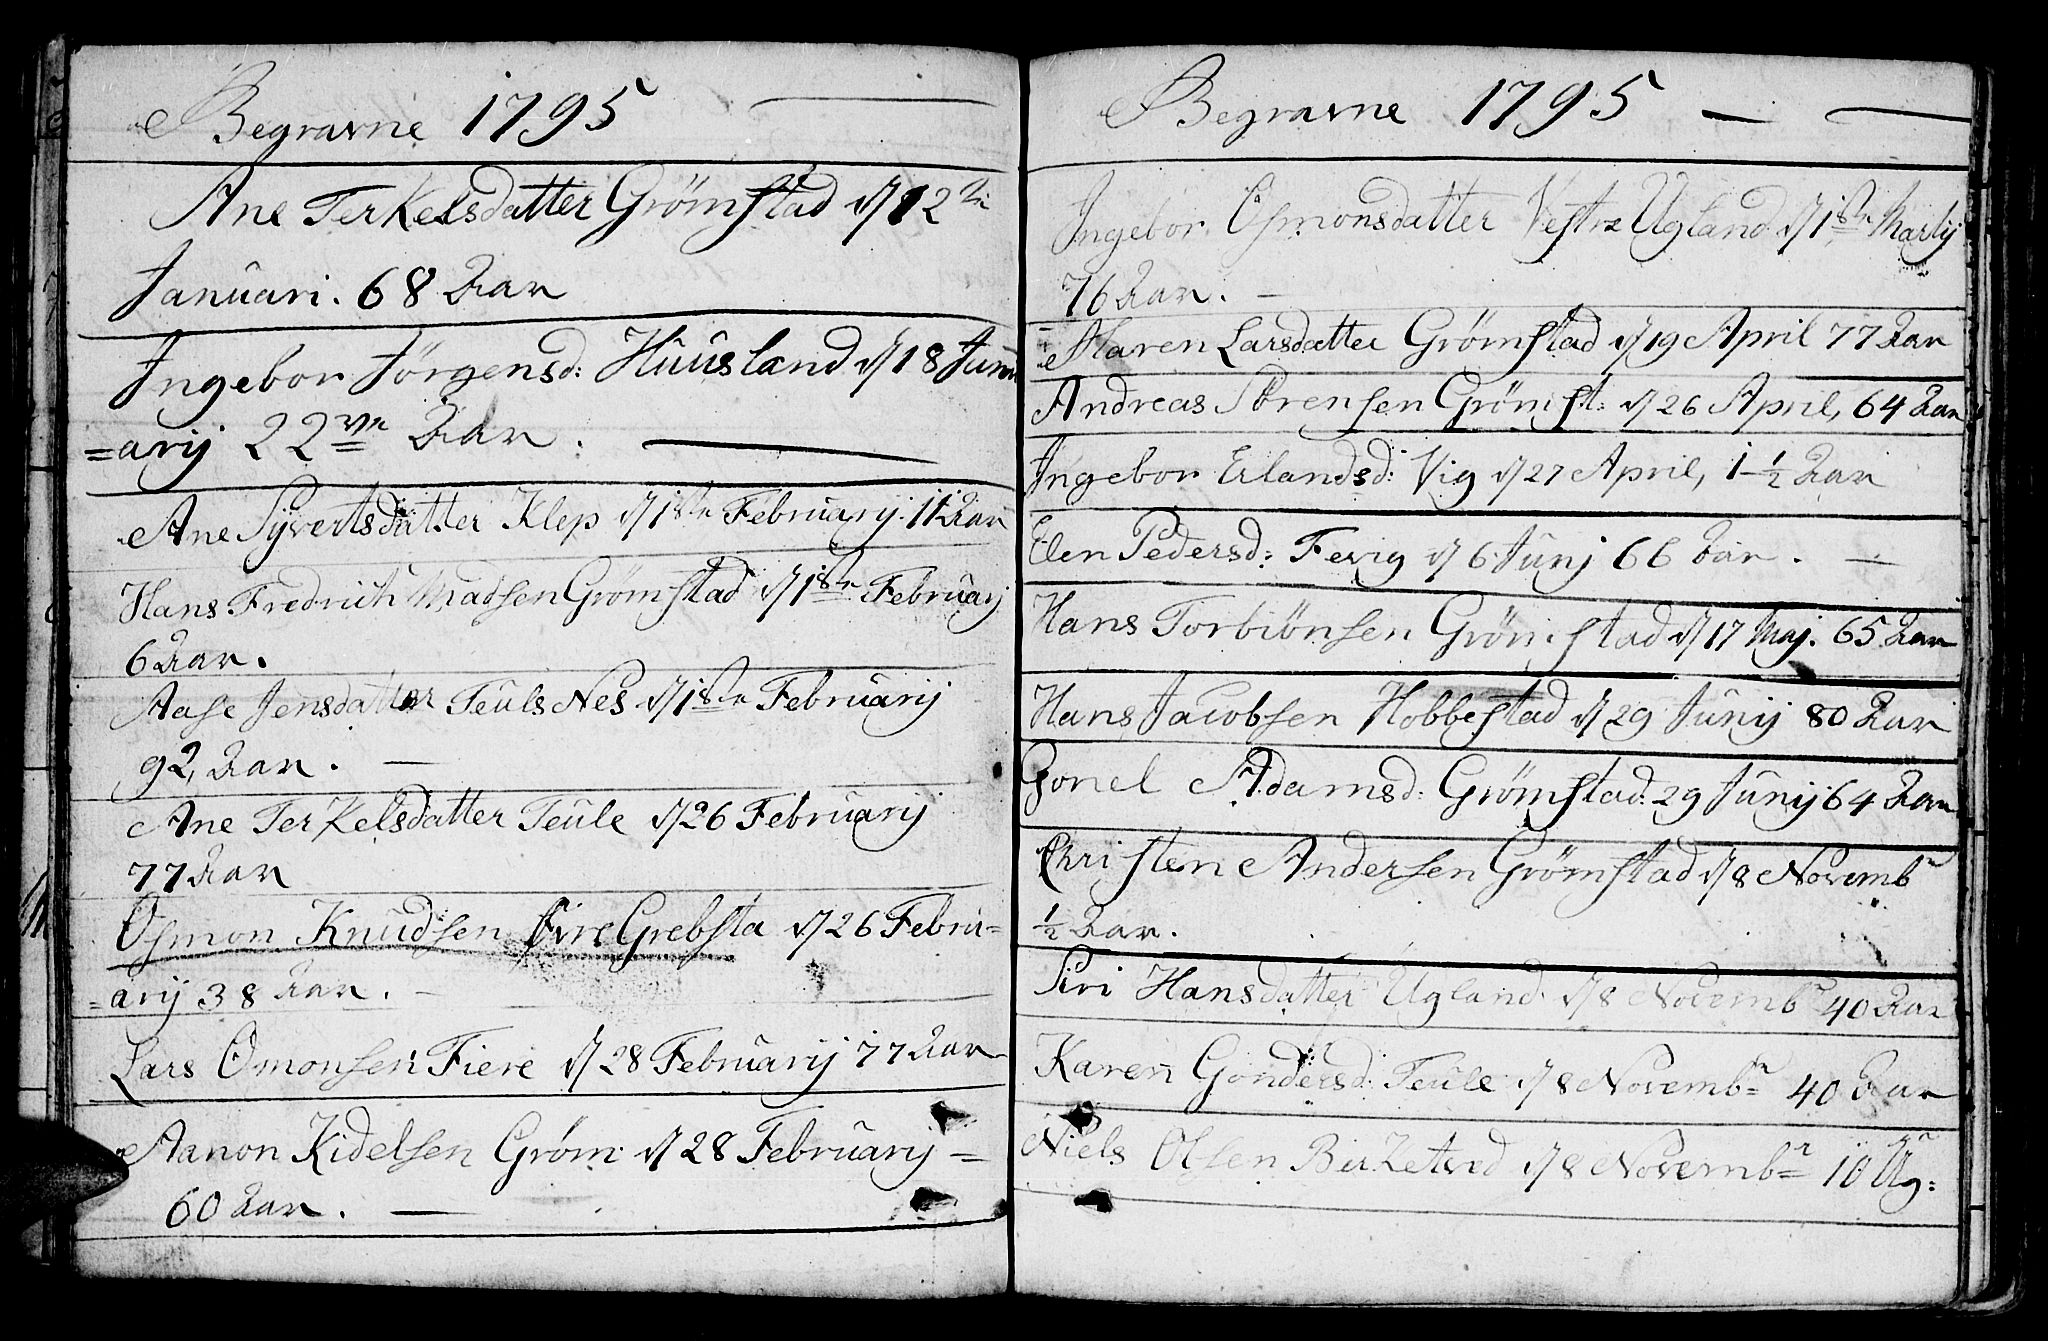 Begravne 1795
Ane Terkelsdatter Grömstad d/ 12te
Januari. 68 Aar
Ingebor Jörgensd: Huusland d/ 18 Janu
=arij 22ve Aar.
Ane Syvertsdatter Klep d/ 1ste Februarij. 11 Aar
Hans Fredrich Madsen Grömstad d/ 1ste Februarij
6 Aar.
Aase Jensdatter TeulsNes d/ 1ste Februarij
92, Aar.
Ane Terkelsdatter Teule d/ 26 Februarij
77 Aar
Osmon Knudsen Øvre Grebsta d/ 26 Febru=
=arij 38 Aar.
Lars Omonsen Fiere d/ 28 Februarij 77 Aar
Aanon Kidelsen Gröm: d/ 28 Februarij =
60 Aar.
Begravne 1795
Ingebor Osmonsdatter Vestre Ugland d/ 1ste Martij
76 Aar.
Maren Larsdatter Grömstad d/ 19 April 77 Aar
Andreas Sörensen Grömst: d/ 26 April, 64 Aar
Ingebor Erlandsd: Vig d/ 27 April, 1 1/2 Aar
Elen Pedersd: Fevig d/ 6 Junj 66 Aar.
Hans Torbiönsen Grömstad d/ 17 Maj. 65 Aar
Hans Jacobsen Hobbestad d/ 29 Junij 80 Aar
Gonel Adamsd: Grömstad: 29 Junij 64 Aar
Christen Andersen Grömstad d/ 8 Novembr
1/2 Aar.
Siri Hansdatter Ugland d/ 8 Novembr 40 Aar
Karen Gondersd: Teule d/ 8 Novembr 40 Aar
Niels Olsen Birketved d/ 8 Novembr 10 Ug: